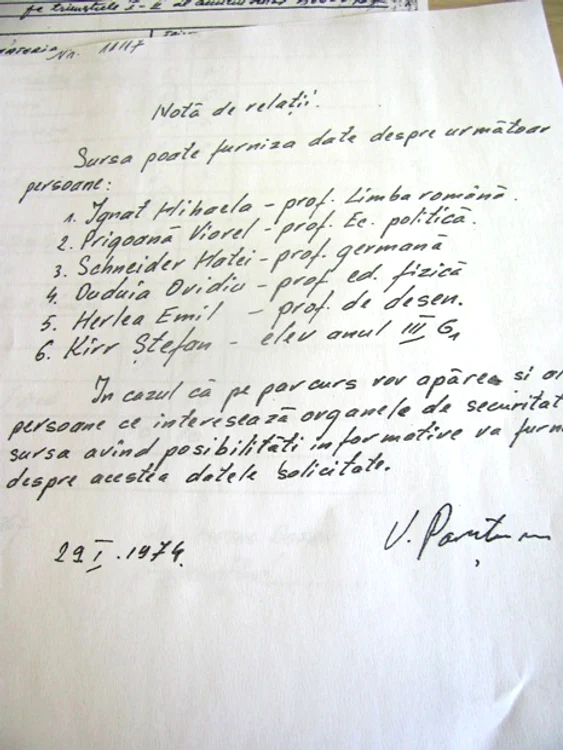 pe trimestrele I-II
Nr. 11117
Notă de relații.
Sursa poate furniza date despre următoar
persoane:
1. Ignat Mihaela - prof. Limba română.
2. Prigoană Viorel - prof. Ec. politică.
3. Schneider Matei - prof. germană
4. Duduia Ovidiu - prof ed. fizică
5. Herlea Emil - prof. de desen.
6. Kirr Ștefan - elev anul III G1
In cazul că pe parcurs vor apărea și al
persoane ce interesează organele de securitat
sursa avînd posibilități informative va furn
despre acestea datele solicitate.
29 I .1974.
V.